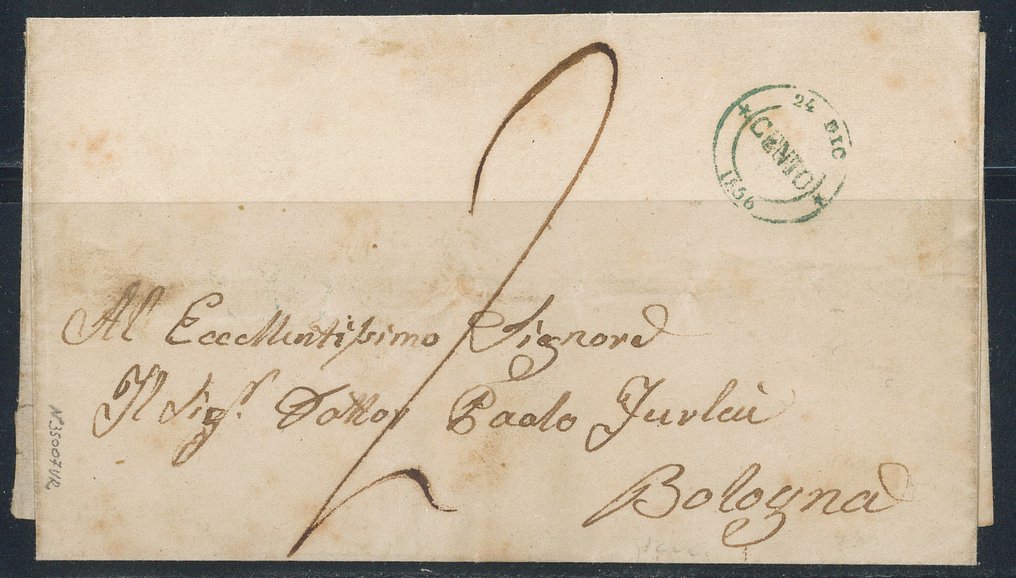 24 DIC
CENTO
1856
2
All Eccellentissimo Signore
Il Sigr. Dottor Paolo
Bologna
N°35007VR